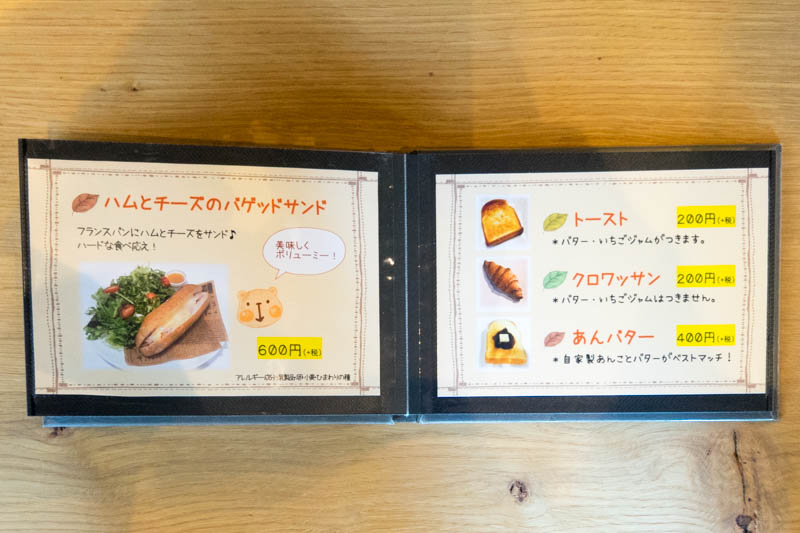 ハムとチーズのバゲッドサンド
フランスパンにハムとチーズをサンド♪
ハードな食べ応え！
美味しく
ボリューミー！
600円(+税)
トースト
200円(+税)
＊バター・いちごジャムがつきます。
クロワッサン
200円(+税)
＊バター・いちごジャムはつきません。
あんバター
400円(+税)
＊自家製あんことバターがベストマッチ！